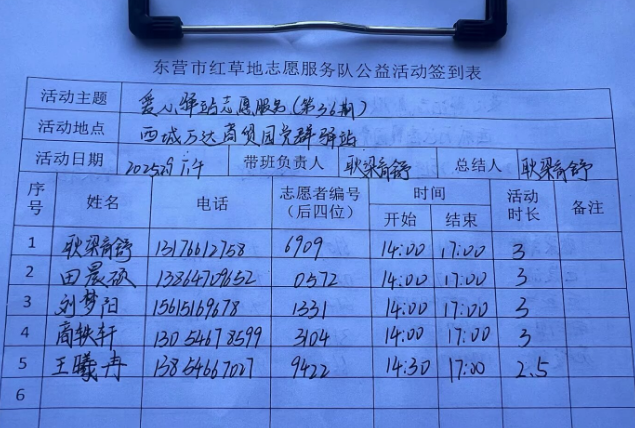 东营市红草地志愿服务队公益活动签到表
活动主题 爱小驿站志愿服务(第36期)
活动地点 西城万达商贸园党群驿站
活动日期 带班负责人 耿梁育舒 总结人 耿梁育舒
序号 姓名 电话 志愿者编号(后四位) 时间 活动时长 备注
开始 结束
1 耿梁育舒 13176612758 6909 14:00 17:00 3
2 田晨 13864709652 0572 14:00 17:00 3
3 刘梦阳 15615169678 1331 14:00 17:00 3
4 商轶轩 13054678599 3104 14:00 17:00 3
5 王曦冉 13854667027 9422 14:30 17:00 2.5
6